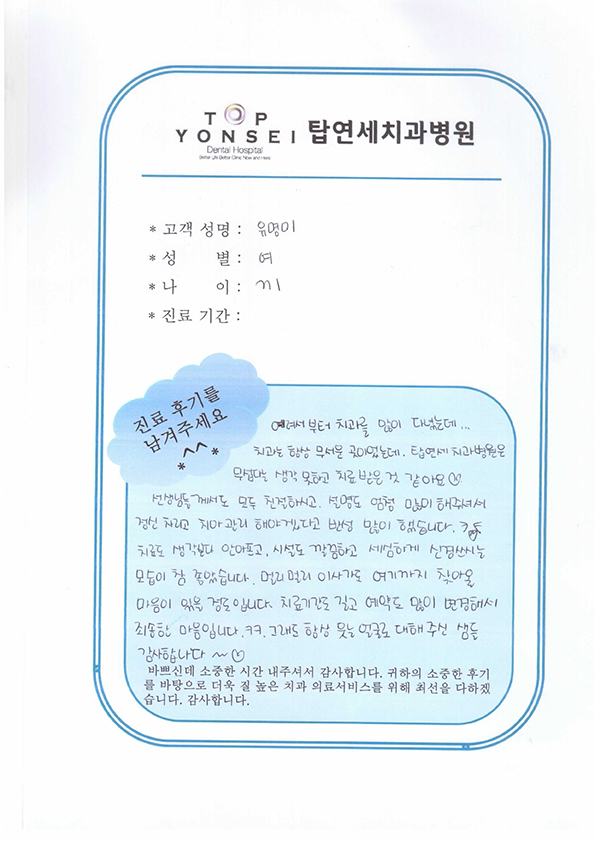 TOP
YONSEI 탑연세치과병원
Dental Hospital
Better Life Better Clinic Now and Here
* 고객 성명 : 유명미
* 성 별 : 여
* 나 이 :
* 진료 기간 :
진료 후기를
남겨주세요
*^^*
어려서부터 치과를 많이 다녔는데...
치과는 항상 무서운 곳이었는데. 탑연세치과병원은
무섭다는 생각 못하고 치료 받은 것 같아요♡
선생님들께서도 모두 친절하시고. 설명도 엄청 많이 해주셔서
정신 차리고 치아관리 해야겠다고 반성 많이 했습니다. ㅋㅋ
치료도 생각보다 안아프고, 시설도 깔끔하고 세심하게 신경쓰시는
모습이 참 좋았습니다. 멀리멀리 이사가도 여기까지 찾아올
마음이 있을 정도입니다. 치료기간도 길고 예약도 많이 변경해서
죄송한 마음입니다.ㅋㅋ. 그래도 항상 웃는 얼굴로 대해 주신 쌤들
감사합니다 ~♡
바쁘신데 소중한 시간 내주셔서 감사합니다. 귀하의 소중한 후기
를 바탕으로 더욱 질 높은 치과 의료서비스를 위해 최선을 다하겠
습니다. 감사합니다.